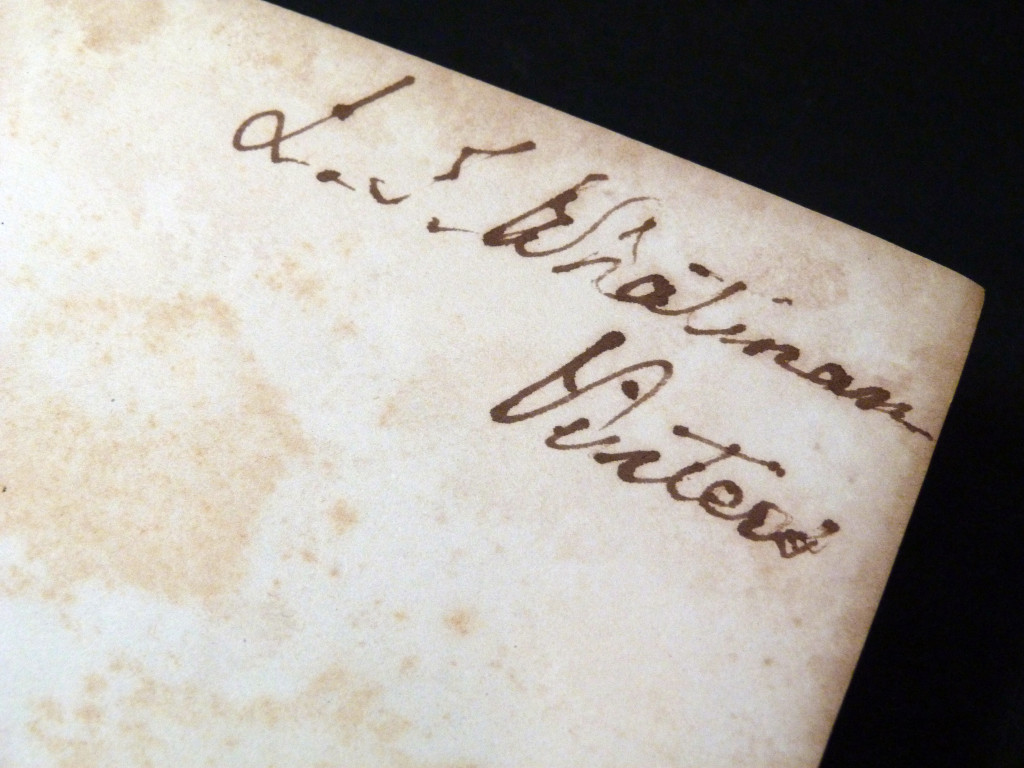 L. S. Whatman
Vinters